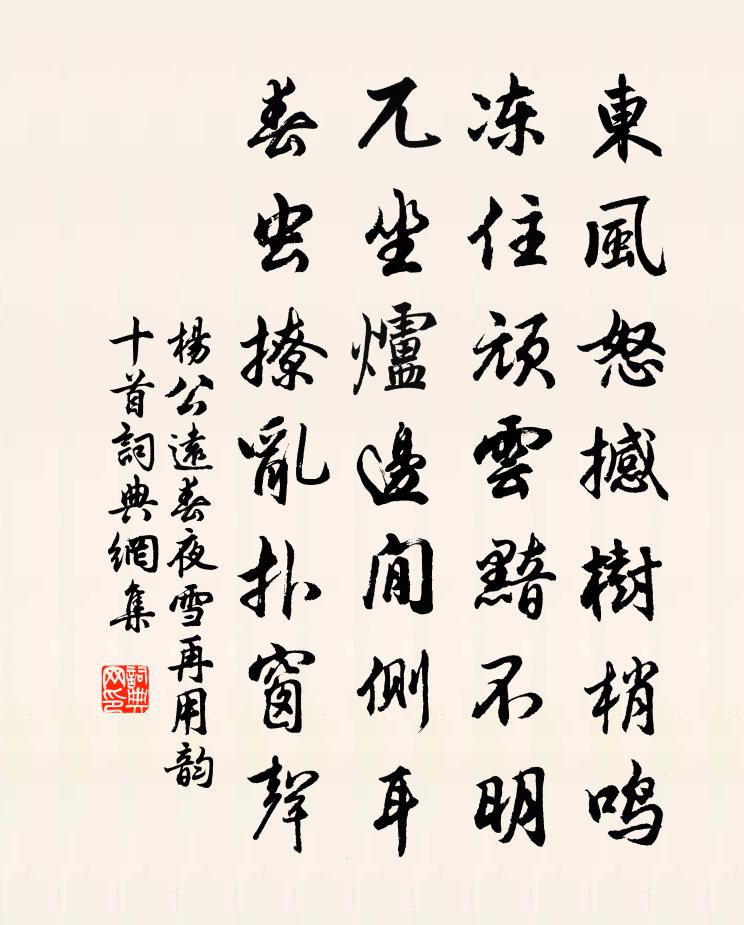 東風怒撼樹梢鳴
冻住頑雲黯不明
兀坐爐邊閒側耳
春虫撩亂扑窗聲
楊公遠春夜雪再用韵
十首詞典網集
詞典网印